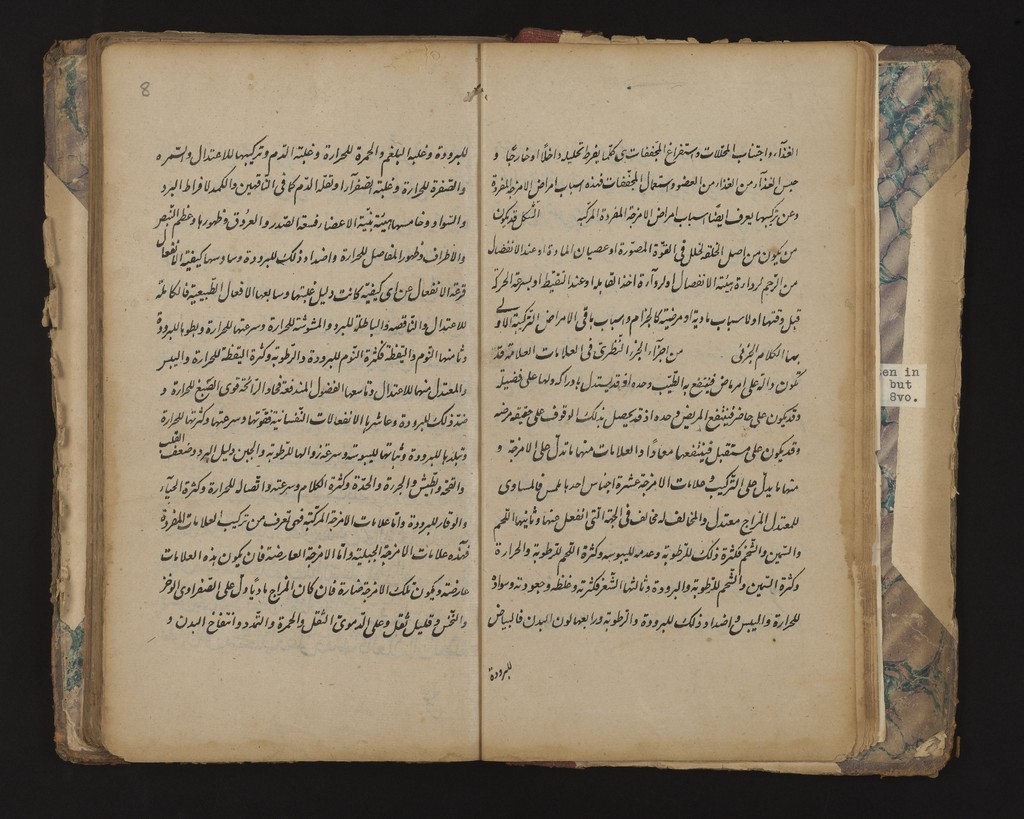 الغذاء واجتناب المحللات واستفراغ المجففات كلما يفرط تحليله داخلا او خارجا و
حبس الغذاء من الغذاء من العضو واستعمال المجففات فهذه اسباب امراض الامزجة المفردة
وعن تركيبها يعرف ايضا اسباب امراض الامزجة المفردة المركبة الشكل قد يكون
من يكون من اصل الخلقة لخلل في القوة المصورة او عصيان المادة او عند الانفصال
من الرحم لرداءة هيئة الانفصال او لرداءة اخذ القابلة او عند التقميط او بسرعة الحركة
قبل وقتها او لاسباب مادية او مرضية كالجذام واسباب باقي الامراض التركيبية الاولى
بها الكلام الجزئي من اجزاء الجزء النظري في العلامات العلامة قد
تكون دالة على امر ماض فينتفع به الطبيب وحده اذ قد يستدل بادراكه لها على فضيلته
وقد يكون على حاضر فينتفع المريض وحده اذ قد يحصل بذلك الوقوف على حقيقة مرضه
وقد يكون على مستقبل فينتفعها معا اذا والعلامات منها ما تدل على الامزجة و
منها ما يدل على التركيب وعلامات الامزجة عشرة اجناس احدها لمس فالمساوي
للمعتدل المزاج معتدل والمخالف له مخالف في الجهة التي انفعل عنها وثانيها اللحم
والسمين والشحم فكثرة ذلك للرطوبة وعدمه لليبوسة وكثرة اللحم للرطوبة والحرارة
وكثرة السمين والشحم للرطوبة والبرودة وثالثها الشعر فكثرته وغلظه وجعودته وسواده
للحرارة واليبس واضداد ذلك للبرودة والرطوبة ورابعها لون البدن فالبياض
للبرودة
8
للبرودة وغلبة البلغم والحمرة للحرارة وغلبة الدم وتركيبها للاعتدال والسمرة
والصفرة للحرارة وغلبة الصفراء او لقلة الدم كما في الناقهين والكمد لافراط البرد
والسواد وخامسها هيئة بنية الاعضاء فسعة الصدر والعروق وظهورها وعظم النبض
والاطراف وظهور المفاصل للحرارة واضداد ذلك للبرودة وسادسها كيفية الانفعال
فسرعة الانفعال عن اي كيفية كانت دليل غلبتها وسابعها الافعال الطبيعية فالكاملة
للاعتدال والناقصة والباطلة للبرد والمشوشة للحرارة وسرعتها للحرارة وبطوها للبرودة
وثامنها النوم واليقظة فكثرة النوم للبرودة والرطوبة وكثرة اليقظة للحرارة واليبس
والمعتدل منها للاعتدال وتاسعها الفضول المندفعة فحاد الرائحة قوي الصبغ للحرارة و
ضد ذلك للبرودة وعاشرها الانفعالات النفسانية فقوتها وسرعتها وكثرتها للحرارة
وتبلدها للبرودة وثباتها لليبوسة وسرعة زوالها للرطوبة والجبن دليل البرد وضعف القلب
والقحة والطيش والجرأة والحدة وكثرة الكلام وسرعته واتصاله للحرارة وكثرة الحياء
والوقار للبرودة واما علامات الامزجة المركبة فهي تعرف من تركيب العلامات المفردة
فهذه علامات الامزجة الجبلية واما الامزجة العارضة فان يكون هذه العلامات
عارضة ويكون تلك الامزجة ضارة فان كان المزاج ماديا دل على الصفراوي الوخز
والنخس وقليل ثقل وعلى الدموي الثقل والحمرة والتمدد وانتفاخ البدن و
en in
but
8vo.